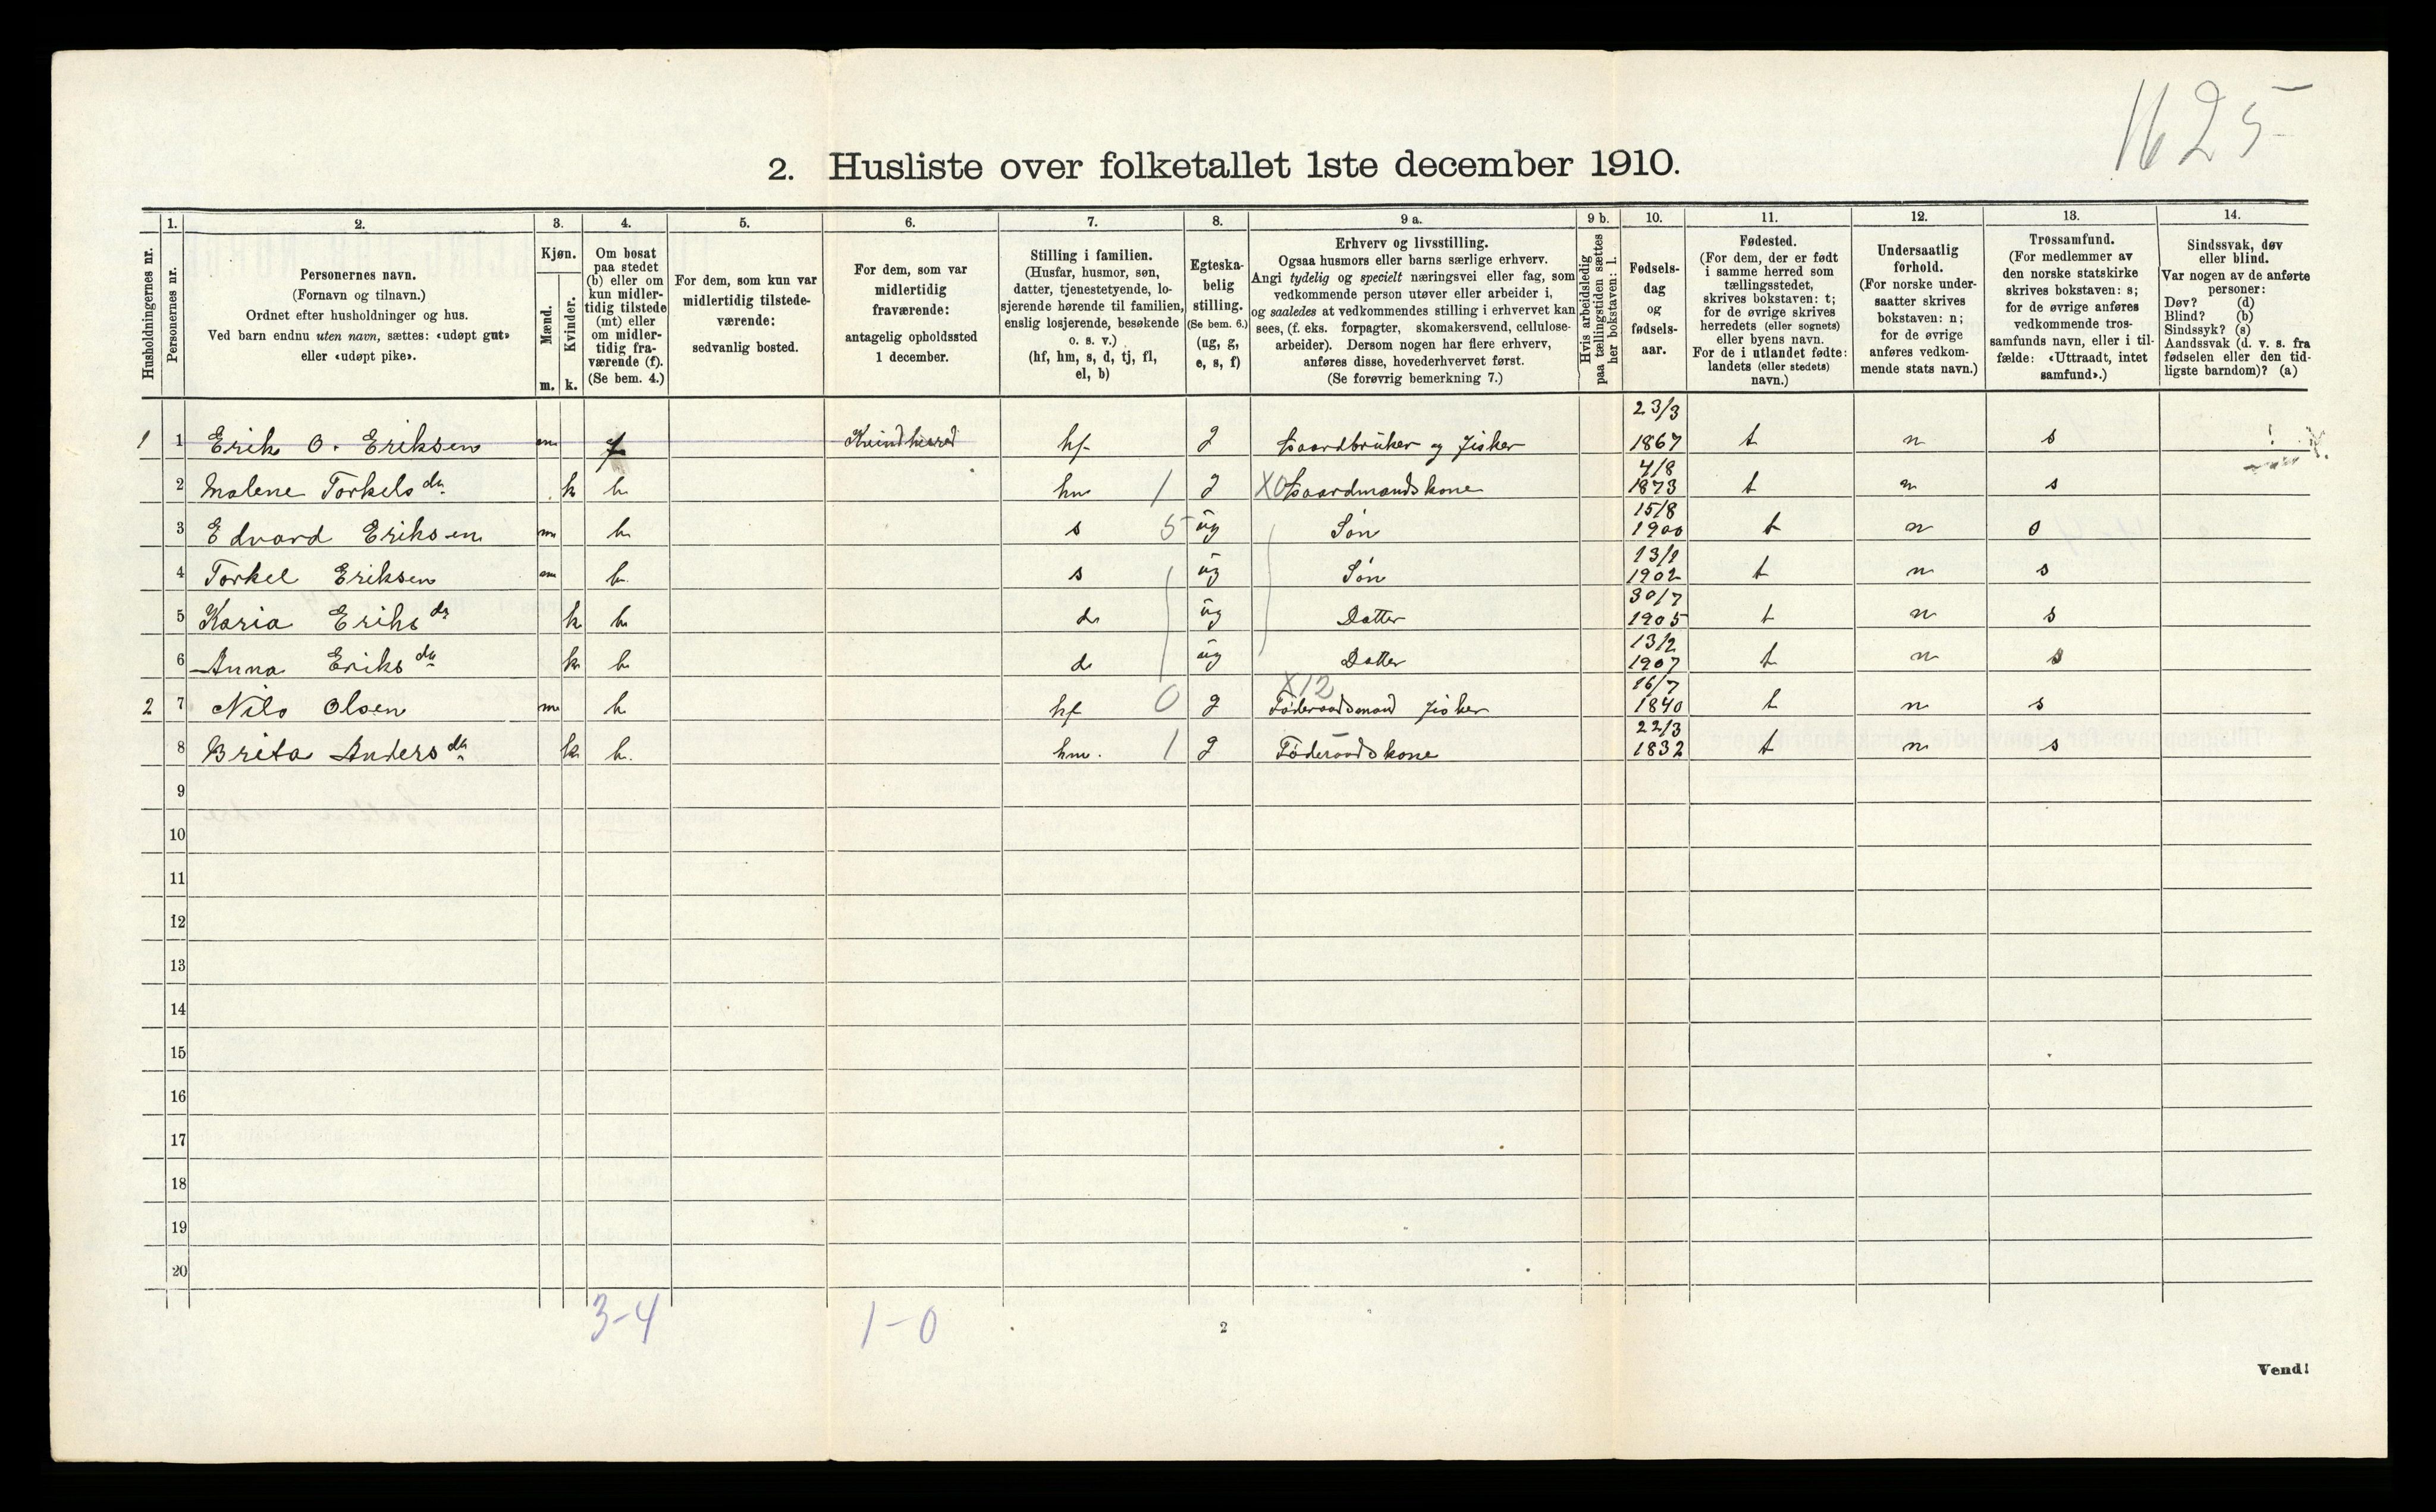 1625
2. Husliste over folketallet 1ste december 1910.
Husholdningernes nr.
1.
Personernes nr.
2.
Personernes navn.
(Fornavn og tilnavn.)
Ordnet efter husholdninger og hus.
Ved barn endnu uten navn, sættes: «udøpt gut»
eller «udøpt pike».
3.
Kjøn.
Mænd.
m.
Kvinder.
k.
4.
Om bosat
paa stedet
(b) eller om
kun midler-
tidig tilstede
(mt) eller
om midler-
tidig fra-
værende (f).
(Se bem. 4.)
5.
For dem, som kun var
midlertidig tilstede-
værende:
sedvanlig bosted.
6.
For dem, som var
midlertidig
fraværende:
antagelig opholdssted
1 december.
7.
Stilling i familien.
(Husfar, husmor, søn,
datter, tjenestetyende, lo-
sjerende hørende til familien,
enslig losjerende, besøkende
o. s. v.)
(hf, hm, s, d, tj, fl,
el, b)
8.
Egteska-
belig
stilling.
(Se bem. 6.)
(ug, g,
e, s, f)
9 a.
Erhverv og livsstilling.
Ogsaa husmors eller barns særlige erhverv.
Angi tydelig og specielt næringsvei eller fag, som
vedkommende person utøver eller arbeider i,
og saaledes at vedkommendes stilling i erhvervet kan
sees, (f. eks. forpagter, skomakersvend, cellulose-
arbeider). Dersom nogen har flere erhverv,
anføres disse, hovederhvervet først.
(Se forøvrig bemerkning 7.)
9 b.
Hvis arbeidsledig
paa tællingstiden sættes
her bokstaven: l.
10.
Fødsels-
dag
og
fødsels-
aar.
11.
Fødested.
(For dem, der er født
i samme herred som
tællingsstedet,
skrives bokstaven: t;
for de øvrige skrives
herredets (eller sognets)
eller byens navn.
For de i utlandet fødte:
landets (eller stedets)
navn.)
12.
Undersaatlig
forhold.
(For norske under-
saatter skrives
bokstaven: n;
for de øvrige
anføres vedkom-
mende stats navn.)
13.
Trossamfund.
(For medlemmer av
den norske statskirke
skrives bokstaven: s;
for de øvrige anføres
vedkommende tros-
samfunds navn, eller i til-
fælde: «Uttraadt, intet
samfund».)
14.
Sindssvak, døv
eller blind.
Var nogen av de anførte
personer:
Døv? (d)
Blind? (b)
Sindssyk? (s)
Aandssvak (d. v. s. fra
fødselen eller den tid-
ligste barndom)? (a)
1 1 Erik O. Eriksen m f Kvindherred hf g Gaardbruker og fisker 23/3 1867 t n s
2 Malene Torkelsdr k b hm 1 g X0 Gaardmandskone 4/8 1873 t n s
3 Edvard Eriksen m b s 5 ug Søn 15/8 1900 t n s
4 Torkel Eriksen m b. s ug Søn 13/1 1902 t n s
5 Karia Eriksdr k b d ug Datter 30/7 1905 t n s
6 Anna Eriksdr k b d ug Datter 13/2 1907 t n s
2 7 Nils Olsen m b hf 0 g X12 Føderaadsmand fisker 16/7 1840 t n s
8 Brita Andersdr k b. hm. 1 g Føderaadskone 22/3 1832 t n s
9
10
11
12
13
14
15
16
17
18
19
20
3-4 1-0
2
Vend!